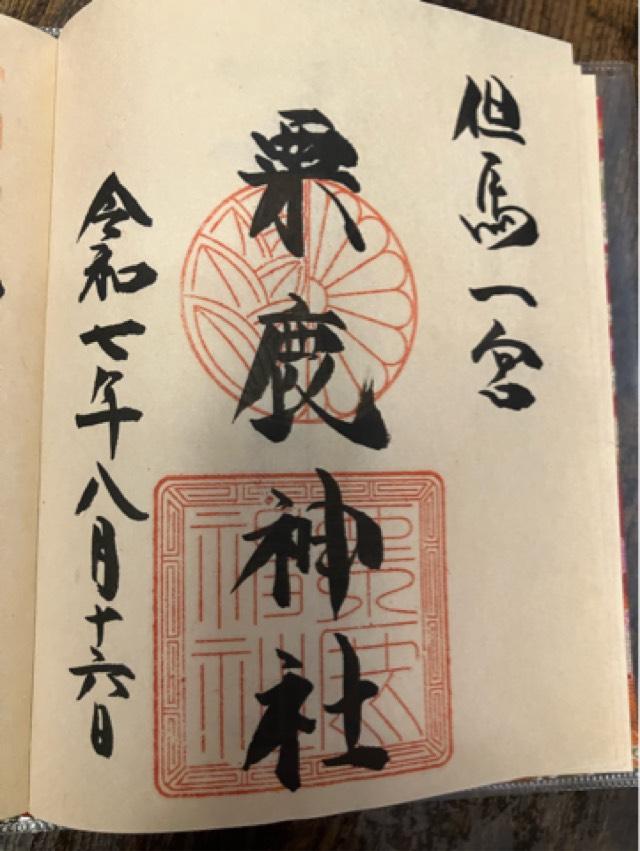 但馬一宮
粟鹿神社
令和七年八月十六日